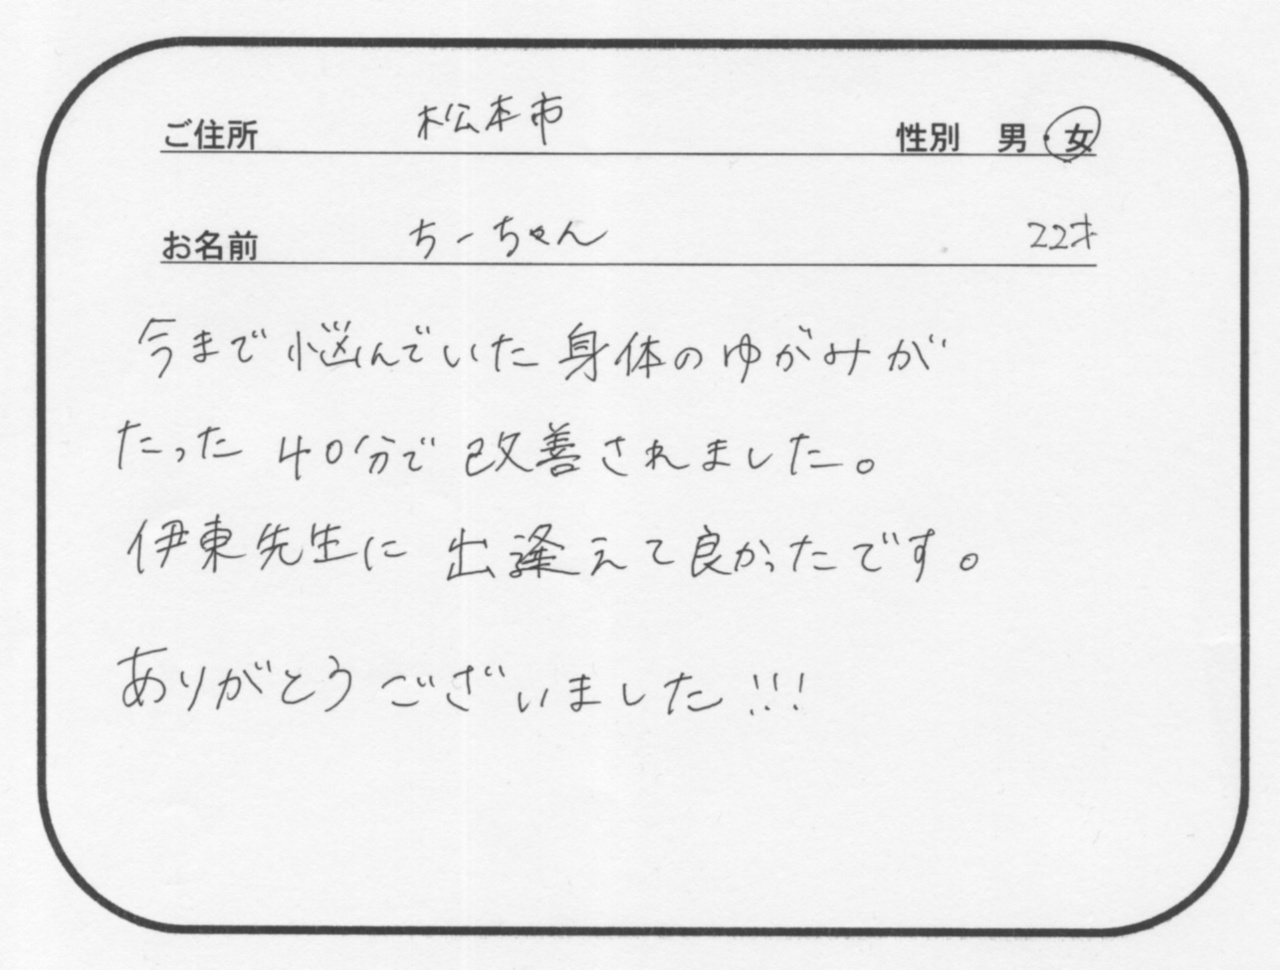 ご住所 松本市 性別 男・女
お名前 ちーちゃん 22才
今まで悩んでいた身体のゆがみが
たった40分で改善されました。
伊東先生に出逢えて良かったです。
ありがとうございました!!!